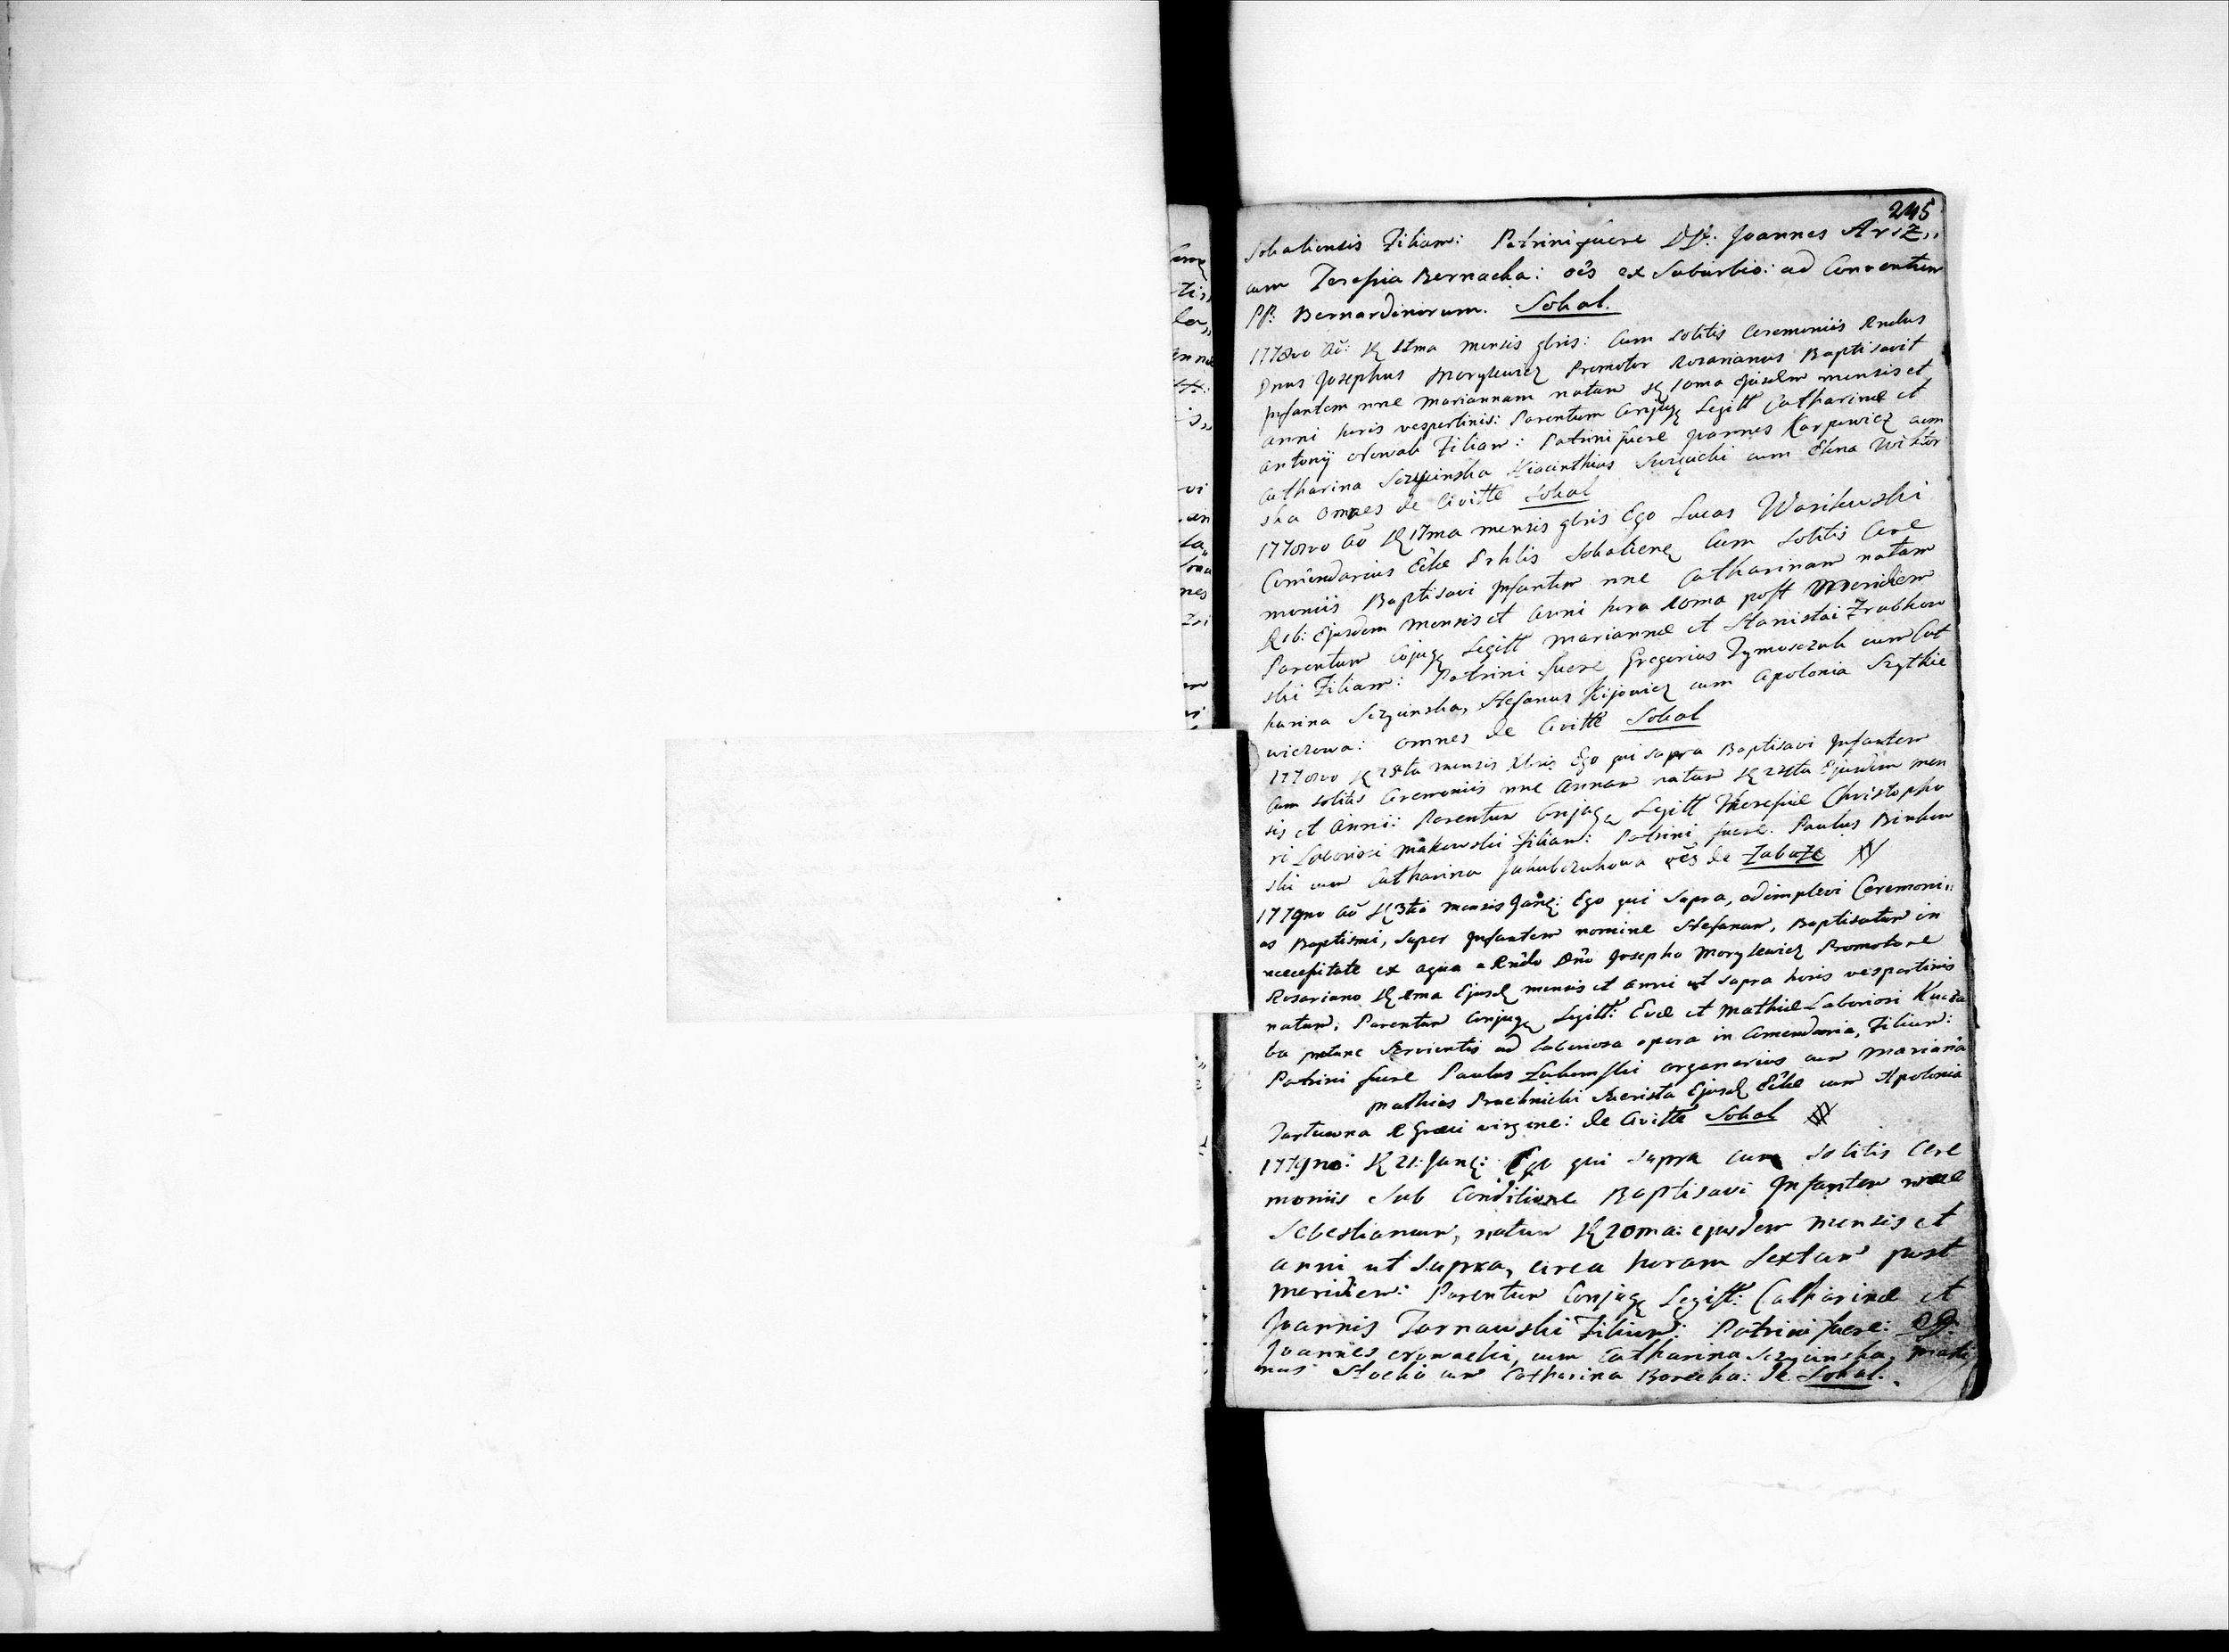 245
Sokaliensis Filiam: Patrini fuere DD: Joannes Arsz,,
cum Teresia Bernacka: oēs ex Suburbio: ad Conventum
PP: Bernardinorum. Sokal.
1778vo Aō: mensis 9bris: Cum Solitis Ceremoniis Rndus
Dnus Josephus Morylewicz Promotor Rosarianus Baptisavit
Infantem nne Mariannam natam ejusdem mensis et
anni horis vespertinis: Parentum Conjug Legitt Catharinæ et
Antonij Filiam: Patrini fuere Joannes Karpowicz cum
Catharina Sczycinska Hiacinthius cum Elena Wiktor
ska omnes de Civitte Sokal
1778vo Aō 17ma mensis 9bris Ego Lucas Wasilewski
Comendarius Ecle Prhlis Sokalien Cum Solitis Cere
moniis Baptisavi Infantem nne Catharinam natam
16: Ejusdem mensis et anni hora post Meridiem
Parentum Cojug Legitt Mariannæ et Stanislai Frabkow
ski Filiam: Patrini fuere Gregorius Tymosczuk cum Cat
harina Sczycinska, Stefanus Kijowicz cum Apolonia Szytkie
wiczowa: omnes de Civitte Sokal
1778vo mensis Xbris Ego qui supra Baptisavi Infantem
Cum solitis Ceremoniis nne Annam natam Ejusdem men
sis et Anni: Parentum Conjug Legitt Theresiæ Christopho
ri Laboriosi Makowski Filiam: Patrini fuere: Paulus Binkow
ski cum Catharina Jakubczukowa oēs de Zabuże
1779no Aō 3tia mensis Jan: Ego qui supra, adimplevi Ceremoni,,
as Baptismi, super Infantem nomine Stefanum, Baptisatum in
necessitate ex aqua a Rndo Dño Josepho Morylewicz Promotore
Rosariano Ejusd mensis et anni ut supra horis vespertinis
natum, Parentum Conjug Legitt: Evæ et Mathiæ Laboriosi
ba Servientis ad laboriosa opera in Comendaria, Filium:
Patrini fuere Paulus organarius cum Marianā
Mathias Prachnicki Sacrista Ejusd Eclæ cum Apolonia
virgine: de Civitte Sokal
1779no: 21: Jan: Ego qui supra cum Solitis Cere
moniis Sub Conditione Baptisavi Infantem nne
Sebestianum, natum 20ma: ejusdem mensis et
anni ut supra, circa horam Sextam post
meridiem: Parentum Conjug Legitt: Catharinæ et
Joannis Tarnawski Filium: Patrini fuere: DD:
Joannes cum Catharina Sczycinska, Marti
nus Stocki cum Catharina Borecka: de Sokal.